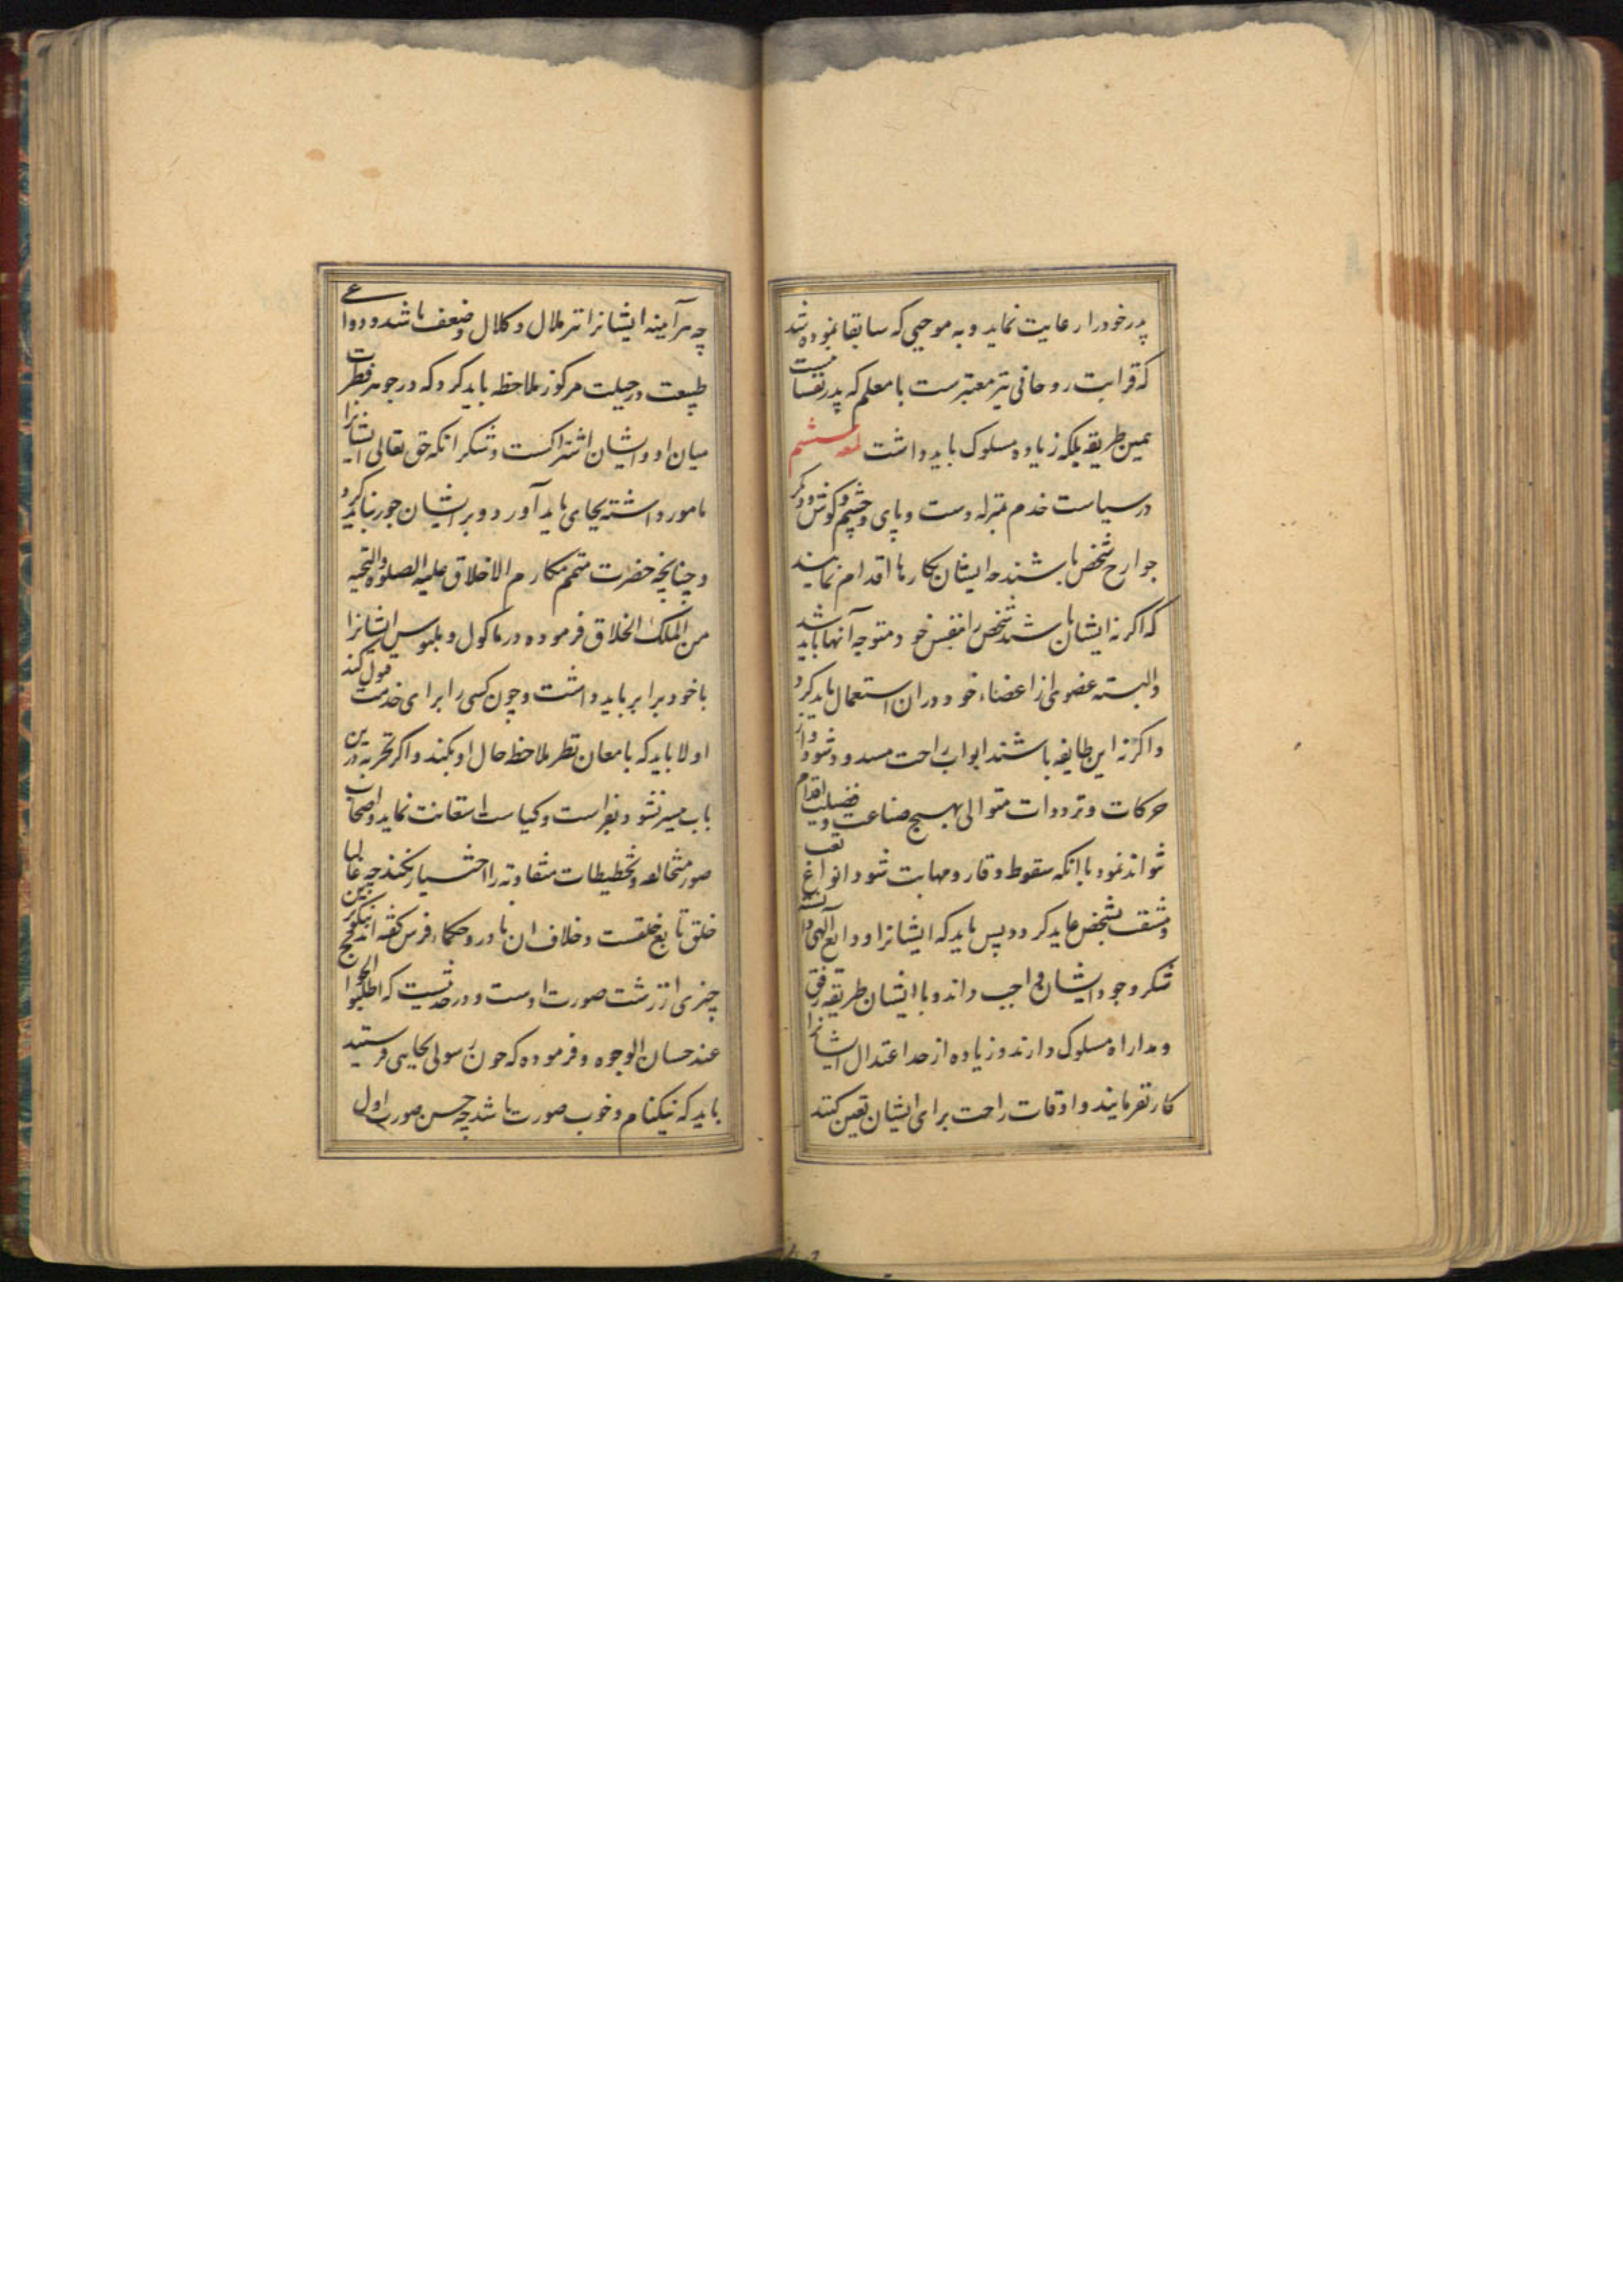 پدر خود را رعایت نماید و به موجبی که سابقا نموده شد
که قرابت روحانی نیز معتبرست با معلم که پدر نفسانیست
همین طریقه بلکه زیاده مسلوک باید داشت لمعه ششم
در سیاست خدم بمنزله دست و پای و چشم و گوش و دیگر
جوارح شخص باشند چه ایشان بکارها اقدام نمایند
که اگر نه ایشان باشند شخص را بنفس خود متوجه آنها باید شد
والبته عضوی از اعضاء خود در ان استعمال باید کرد
و اگر نه این طایفه باشند ابواب راحت مسدود شود و از
حرکات و ترددات متوالی بهیچ صناعت و فضیلت اقدام
نتواند نمود با انکه سقوط وقار و مهابت شود و انواع تعب
و مشقت بشخص عاید کردد پس باید که ایشانرا ودایع الهی دانسته
شکر وجود ایشان واجب داند و با ایشان طریقه رفق
و مداراه مسلوک دارند و زیاده از حد اعتدال ایشانرا
کار نفرمایند و اوقات راحت برای ایشان تعیین کنند
چه هرآینه ایشانرا نیز ملال و کلال و ضعف باشد و دواعی
طبیعت در جبلت مرکوز ملاحظه باید کرد که در جوهر فطرت
میان او و ایشان اشتراکست و شکر انکه حق تعالی ایشانرا
مامور داشته بجای باید آورد و بر ایشان جور نباید کرد
و چنانچه حضرت متمم مکارم الاخلاق علیه الصلوه والتحیه
من الملک الخلاق فرموده در ماکول و ملبوس ایشانرا
با خود برابر باید داشت و چون کسی را برای خدمت قبول کند
اولا باید که بامعان نظر ملاحظه حال او بکند و اگر تجربه درین
باب میسر نشود بفراست و کیاست استعانت نماید و اصحاب
صور متخالفه و تخطیطات متفاوته را اختیار نکند چه غالبا
خلق تابع خلقست و خلاف ان نادر و حکماء فرس کفته اند نیکوترین
چیزی از زشت صورت اوست و در حدیث است که اطلبوا الحوایج
عند حسان الوجوه و فرموده که چون رسولی بجایی فرستید
باید که نیکنام و خوب صورت باشد چه حسن صورت اول